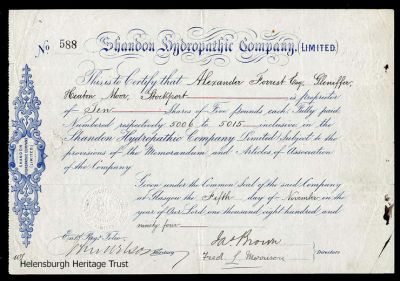 No 588 Shandon Hydropathic Company, (LIMITED.)
This is to Certify that Alexander Forrest Esq, Gleniffer,
Heaton Moor, Stockport is proprietor
of Ten Shares of Five pounds each, Fully paid,
Numbered respectively 5006 to 5015 inclusive in the
Shandon Hydropathic Company Limited Subject to the
provisions of the Memorandum and Articles of Association
of the Company.
Given under the Common Seal of the said Company
at Glasgow the Fifth day of November in the
year of Our Lord one thousand eight hundred and
ninety four
SHANDON
HYDROPATHIC COMPANY
LIMITED
Jas Brown
Secretary
Fred. L. Morrison
Directors
Helensburgh Heritage Trust